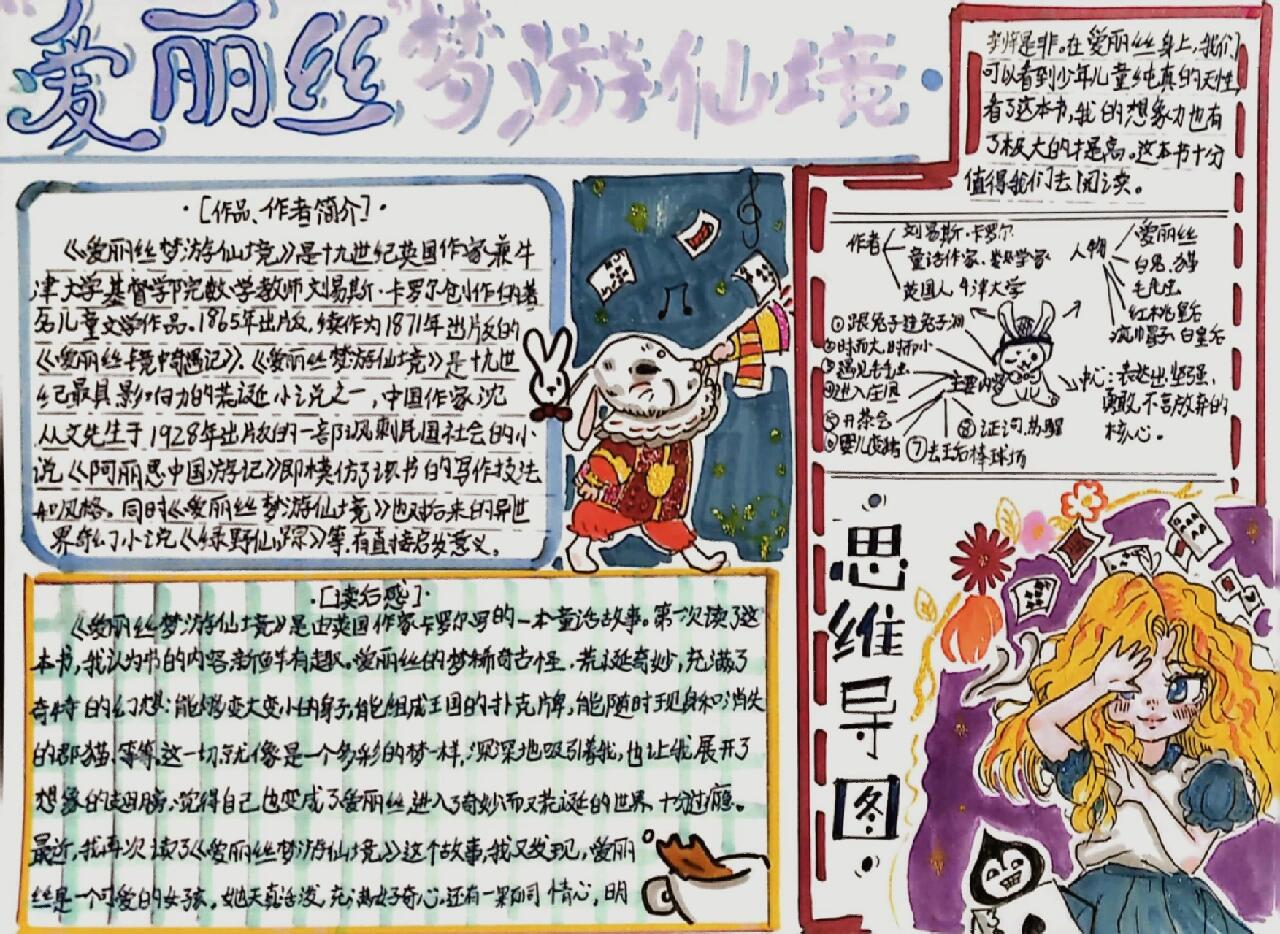 "爱丽丝"梦游仙境
·[作品、作者简介]·
《爱丽丝梦游仙境》是十九世纪英国作家兼牛
津大学基督学院数学教师刘易斯·卡罗尔创作的著
名儿童文学作品。1865年出版,续作为1871年出版的
《爱丽丝镜中奇遇记》。《爱丽丝梦游仙境》是十九世
纪最具影响力的荒诞小说之一,中国作家沈
从文先生于1928年出版的一部讽刺民国社会的小
说《阿丽思中国游记》即模仿了该书的写作技法
和风格。同时《爱丽丝梦游仙境》也对后来的异世
界奇幻小说《绿野仙踪》等,有直接启发意义。
·[读后感]·
《爱丽丝梦游仙境》是由英国作家卡罗尔写的一本童话故事。第一次读了这
本书,我认为书的内容新鲜有趣。爱丽丝的梦稀奇古怪,荒诞奇妙,充满了
奇特的幻想:能够变大变小的身子,能组成王国的扑克牌,能随时现身和消失
的那猫,等等,这一切就像是一个多彩的梦一样,深深地吸引着我,也让我展开了
想象的翅膀,觉得自己也变成了爱丽丝,进入了奇妙而又荒诞的世界,十分过瘾。
最近,我再次读了《爱丽丝梦游仙境》这个故事,我又发现,爱丽
丝是一个可爱的女孩,她天真活泼,充满好奇心,还有一颗同情心,明
是非。在爱丽丝身上,我们
可以看到少年儿童纯真的天性
看了这本书,我的想象力也有
了极大的提高。这本书十分
值得我们去阅读。
作者
刘易斯·卡罗尔
童话作家、数学家
英国人 牛津大学
人物
爱丽丝
白兔、猫
毛毛虫
红桃皇后
疯帽子 白皇后
主要内容
①跟兔子进兔子洞
②时而大,时而小
③遇见毛毛虫
④进入庄园
⑤开茶会
⑥婴儿变猪
⑦去王后棒球场
⑧证词,苏醒
:表达出坚强、
勇敢,不言放弃的
核心。
思维导图